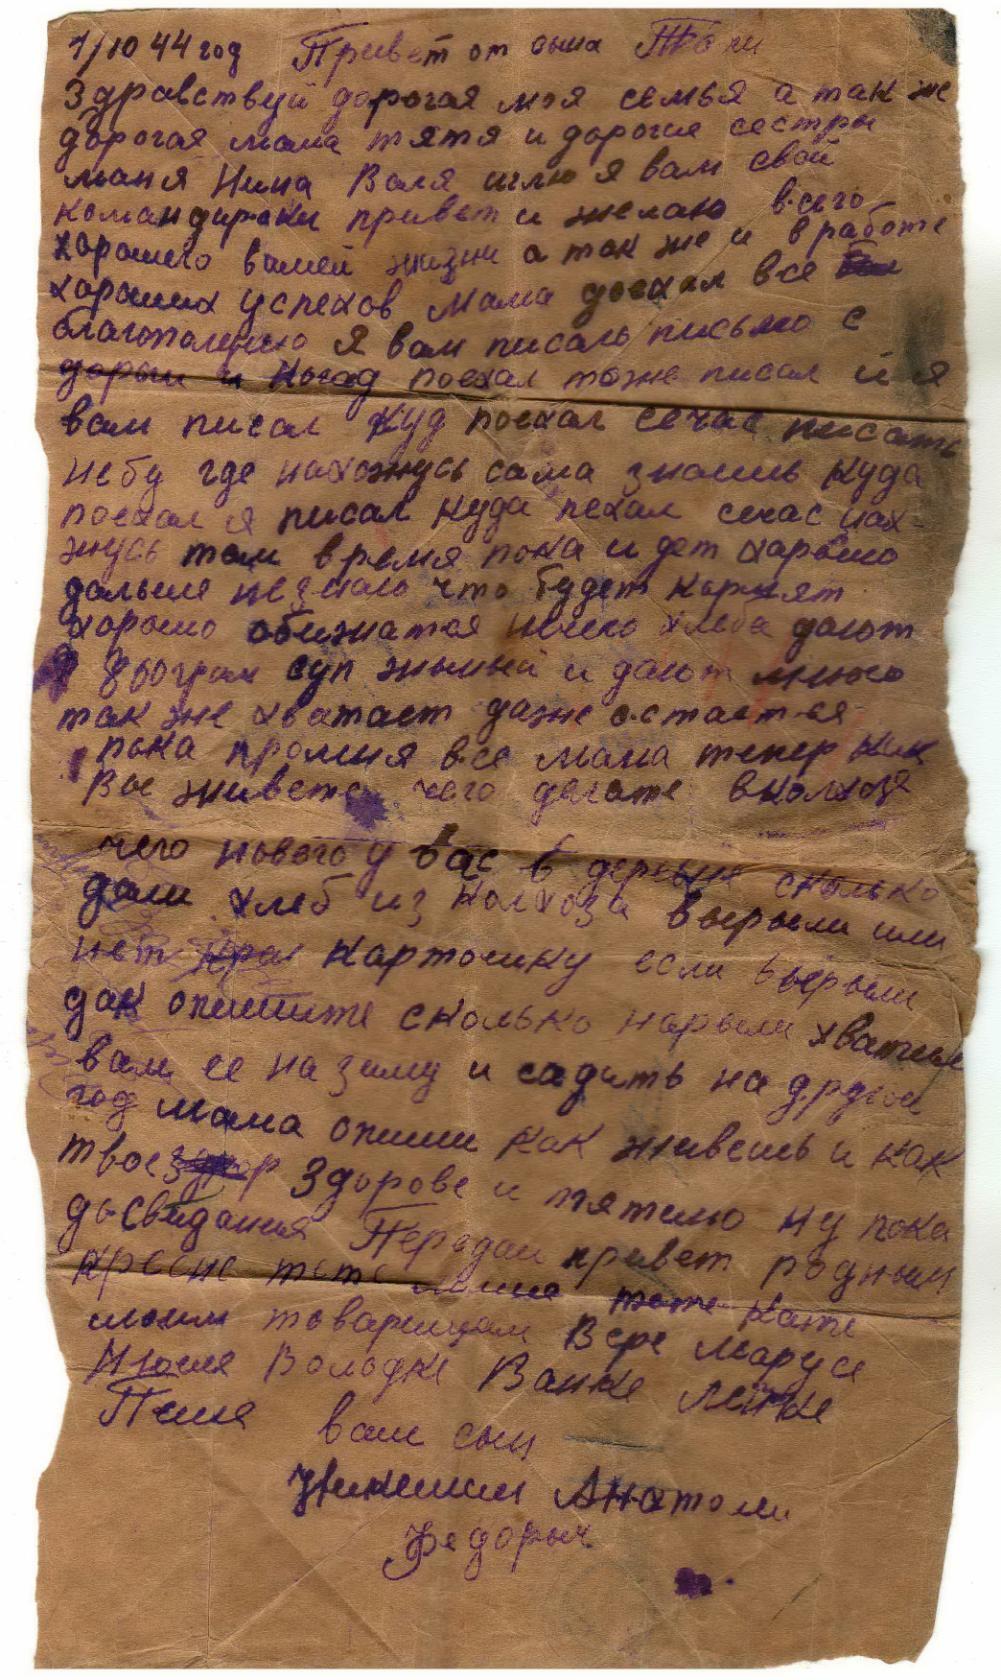 7/10 44 год Привет от сына Толи
Здравствуй дорогая моя семья а так же
дорогая мама тятя и дорогие сестры
Маня Нина Валя шлю я вам свой
командирски привет и желаю всего
хорошего вашей жизни а так же и в работе
хороших успехов Мама доехал все
благополучно Я вам писал письмо с
дороги и когад поехал тоже писал и я
вам писал куд поехал сечас писать
небу где нахожусь сама знаешь куда
поехал я писал куда пехал сечас нах-
жусь там время пока и дет харошо
дальше незнаю что будет кормят
харошо обижатся нечего хлеба дают
800 грам суп жырный и дают много
так же хватает даже остается
пока про меня все мама тепер как
Вы живете чего делате в колхозе
чего нового у вас в деревне сколько
дали хлеб из колхоза вырыли или
нет карточику если вырыли
дак опишите сколько нарыли хватит ли
вам ее на зиму и садить на другой
год мама опиши как живешь и как
твое здорове и тятено ну пока
досвидания Передай привет родным
кресне тете Мине тете Кате
моим товарищам Вере Марусе
Нюсе Володке Ванке Ленке
Пане
ваш сын
Анатоли
Федорыч